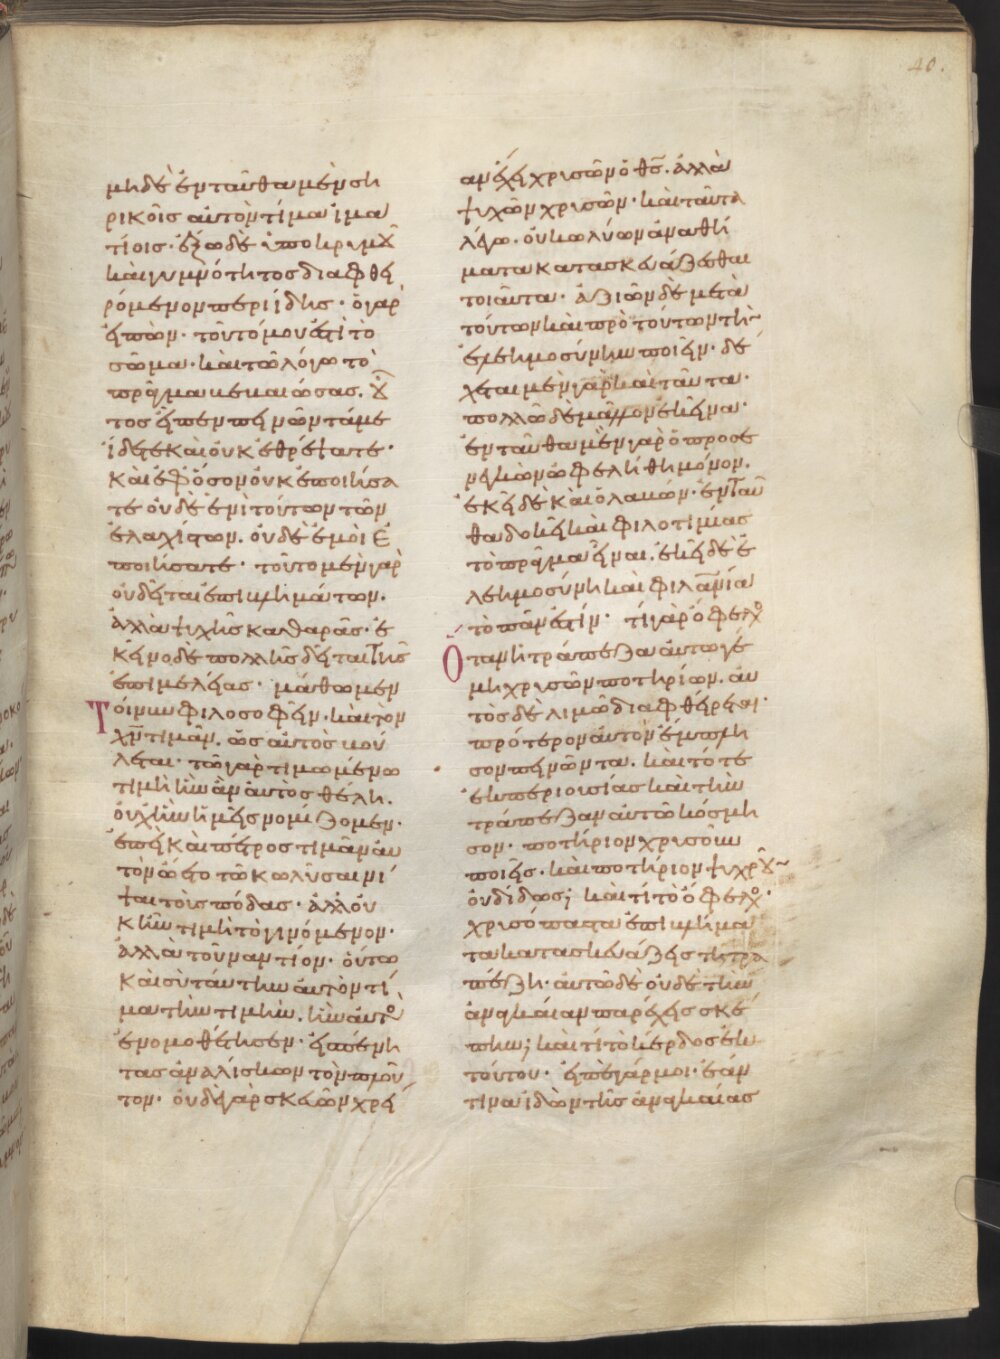 40.
μηδὲ ἐνταῦθα μὲν ση
ρικοῖς αὐτὸν τίμα ἱμα
τίοις· ἔξω δὲ ὑπὸ κρυμοῦ
καὶ γυμνότητος διαφθει
ρόμενον περιίδης· ὁ γὰρ
εἰπὼν· τοῦτό μου ἐστὶ τὸ
σῶμα· καὶ τῶ λόγω τὸ
πρᾶγμα βεβαιώσας. οὗ
τος εἶπεν πεινῶντά με
ἴδετε καὶ οὐκ ἐθρέψατε·
καὶ ἐφόσον οὐκ ἐποιήσα
τε οὐδὲ ἑνὶ τούτων τῶν
ἐλαχίστων. οὐδὲ ἐμοὶ ἐ
ποιήσατε· τοῦτο μὲν γὰρ
οὐ δεῖται ἐπιβλημάτων.
ἀλλὰ ψυχῆς καθαρᾶς· ἐ
κεῖνο δὲ πολλῆς δεῖται τῆς
ἐπιμελείας· μάθωμεν
τοίνυν φιλοσοφεῖν· καὶ τὸν
χ̅ν̅ τιμᾶν. ὡς αὐτὸς βού
λεται· τῶ γὰρ τιμωμένω
τιμὴ ἣν ἂν αὐτὸς θέλη.
οὐχ ἣν ἡμεῖς νομίζομεν·
ἐπεὶ καὶ πέτρος τιμᾶν αὐ
τὸν ὤετο τῶ κωλῦσαι νί
ψαι τοὺς πόδας· ἀλλ' οὐ
κ ἦν τιμὴ τὸ γινόμενον·
ἀλλὰ τοὐναντίον· οὕτω
καὶ σὺ ταύτην αὐτὸν τί
μα τὴν τιμὴν. ἣν αὐτὸς
ἐνομοθέτησεν· εἰς πένη
τας ἀναλίσκων τὸν πλοῦ
τον· οὐδὲ γὰρ σκευῶν χρεί
αν ἔχει χρυσῶν ὁ θ̅ς̅· ἀλλὰ
ψυχῶν χρυσῶν· καὶ ταῦτα
λέγω· οὐ κωλύων ἀναθή
ματα κατασκευάζεσθαι
τοιαῦτα· ἀξιῶν δὲ μετὰ
τούτων καὶ πρὸ τούτων τὴν
ἐλεημοσύνην ποιεῖν· δέ
χεται μὲν γὰρ καὶ ταῦτα·
πολλῶ δὲ μᾶλλον ἐκεῖνα·
ἐνταῦθα μὲν γὰρ ὁ προσε
νεγκὼν ὠφελήθη μόνον.
ἐκεῖ δὲ καὶ ὁ λαβών· ἐνταῦ
θα δοκεῖ καὶ φιλοτιμίας
τὸ πρᾶγμα εἶναι. ἐκεῖ δὲ ἐ
λεημοσύνη καὶ φιλανία
τὸ πᾶν ἐστίν· τί γὰρ ὄφελος
ὅταν ἡ τράπεζα αὐτῶ γέ
μη χρυσῶν ποτηρίων. αὐ
τὸς δὲ λιμῶ διαφθείρεται·
πρότερον αὐτὸν ἔμπλη
σον πεινῶντα. καὶ τότε
ἐκ περιουσίας καὶ τὴν
τράπεζαν αὐτοῦ κόσμη
σον· ποτήριον χρυσοῦν
ποιεῖς· καὶ ποτήριον ψυχροῦ
οὐ δίδως; καὶ τί τὸ ὄφελος·
χρυσόπαστα ἐπιβλήμα
τα κατασκευάζεις τῆ τρα
πέζη· αὐτῶ δὲ οὐδὲ τὴν
ἀναγκαίαν παρέχεις σκέ
πην; καὶ τί τὸ κέρδος ἐκ
τούτου· εἰπὲ γάρ μοι· ἐάν
τινα ἰδὼν τῆς ἀναγκαίας